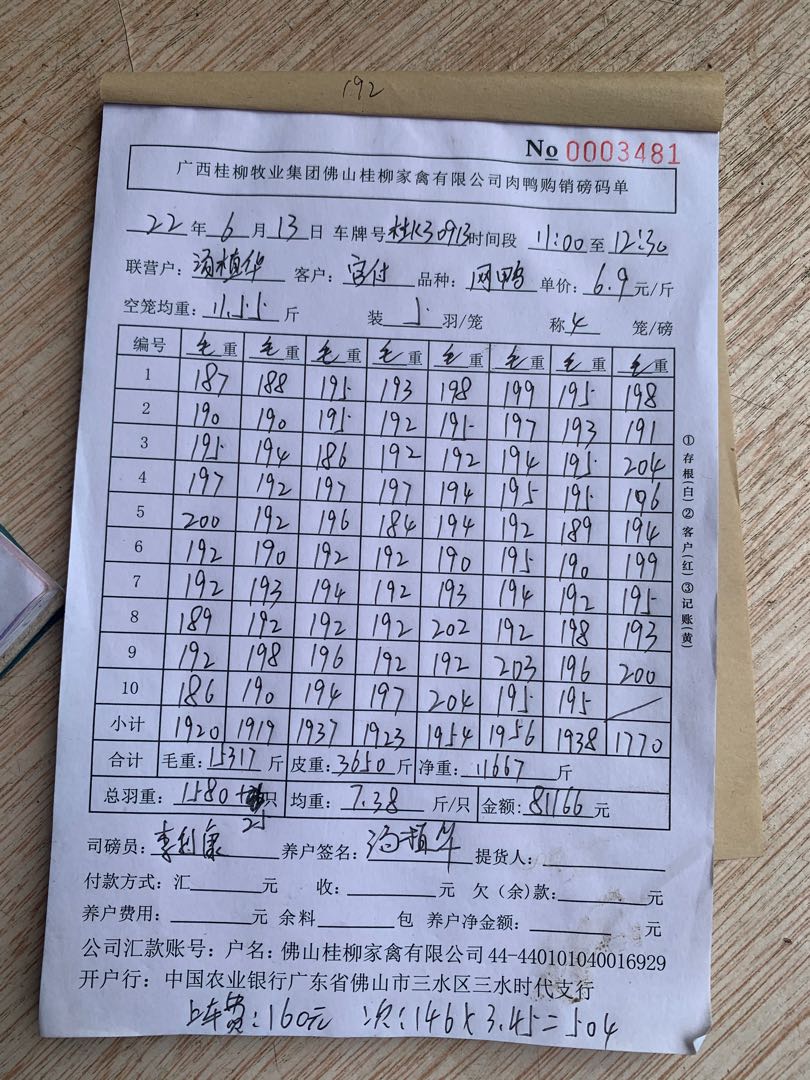 192
No 0003481
广西桂柳牧业集团佛山桂柳家禽有限公司肉鸭购销磅码单
22年6月13日 车牌号桂K30913时间段 11:00至12:30
联营户:汤植华 客户:富付 品种:网鸭 单价:6.9元/斤
空笼均重:11.55斤 装 5 羽/笼 称4笼/磅
编号 毛重 毛重 毛重 毛重 毛重 毛重 毛重 毛重
1 187 188 195 193 198 199 195 198
2 190 190 195 192 195 197 193 191
3 195 194 186 192 192 194 195 204
4 197 192 197 197 194 195 195 196
5 200 192 196 184 194 192 189 194
6 192 190 192 192 190 195 190 199
7 192 193 194 192 193 194 192 195
8 189 192 192 192 202 192 198 193
9 192 198 196 192 192 203 196 200
10 186 190 194 197 204 195 195 /
小计 1920 1919 1937 1923 1954 1956 1938 1770
合计 毛重:15317斤 皮重:3650斤 净重:11667斤
总羽重:1580+只 均重:7.38斤/只 金额:81166元
25
司磅员:李利康 养户签名:汤植华 提货人:
付款方式:汇 元 收: 元 欠(余)款: 元
养户费用: 元 余料 包 养户净金额: 元
公司汇款账号:户名:佛山桂柳家禽有限公司44-440101040016929
开户行:中国农业银行广东省佛山市三水区三水时代支行
上车费:160元 次:146×3.45=504
①存根(白)②客户(红)③记账(黄)